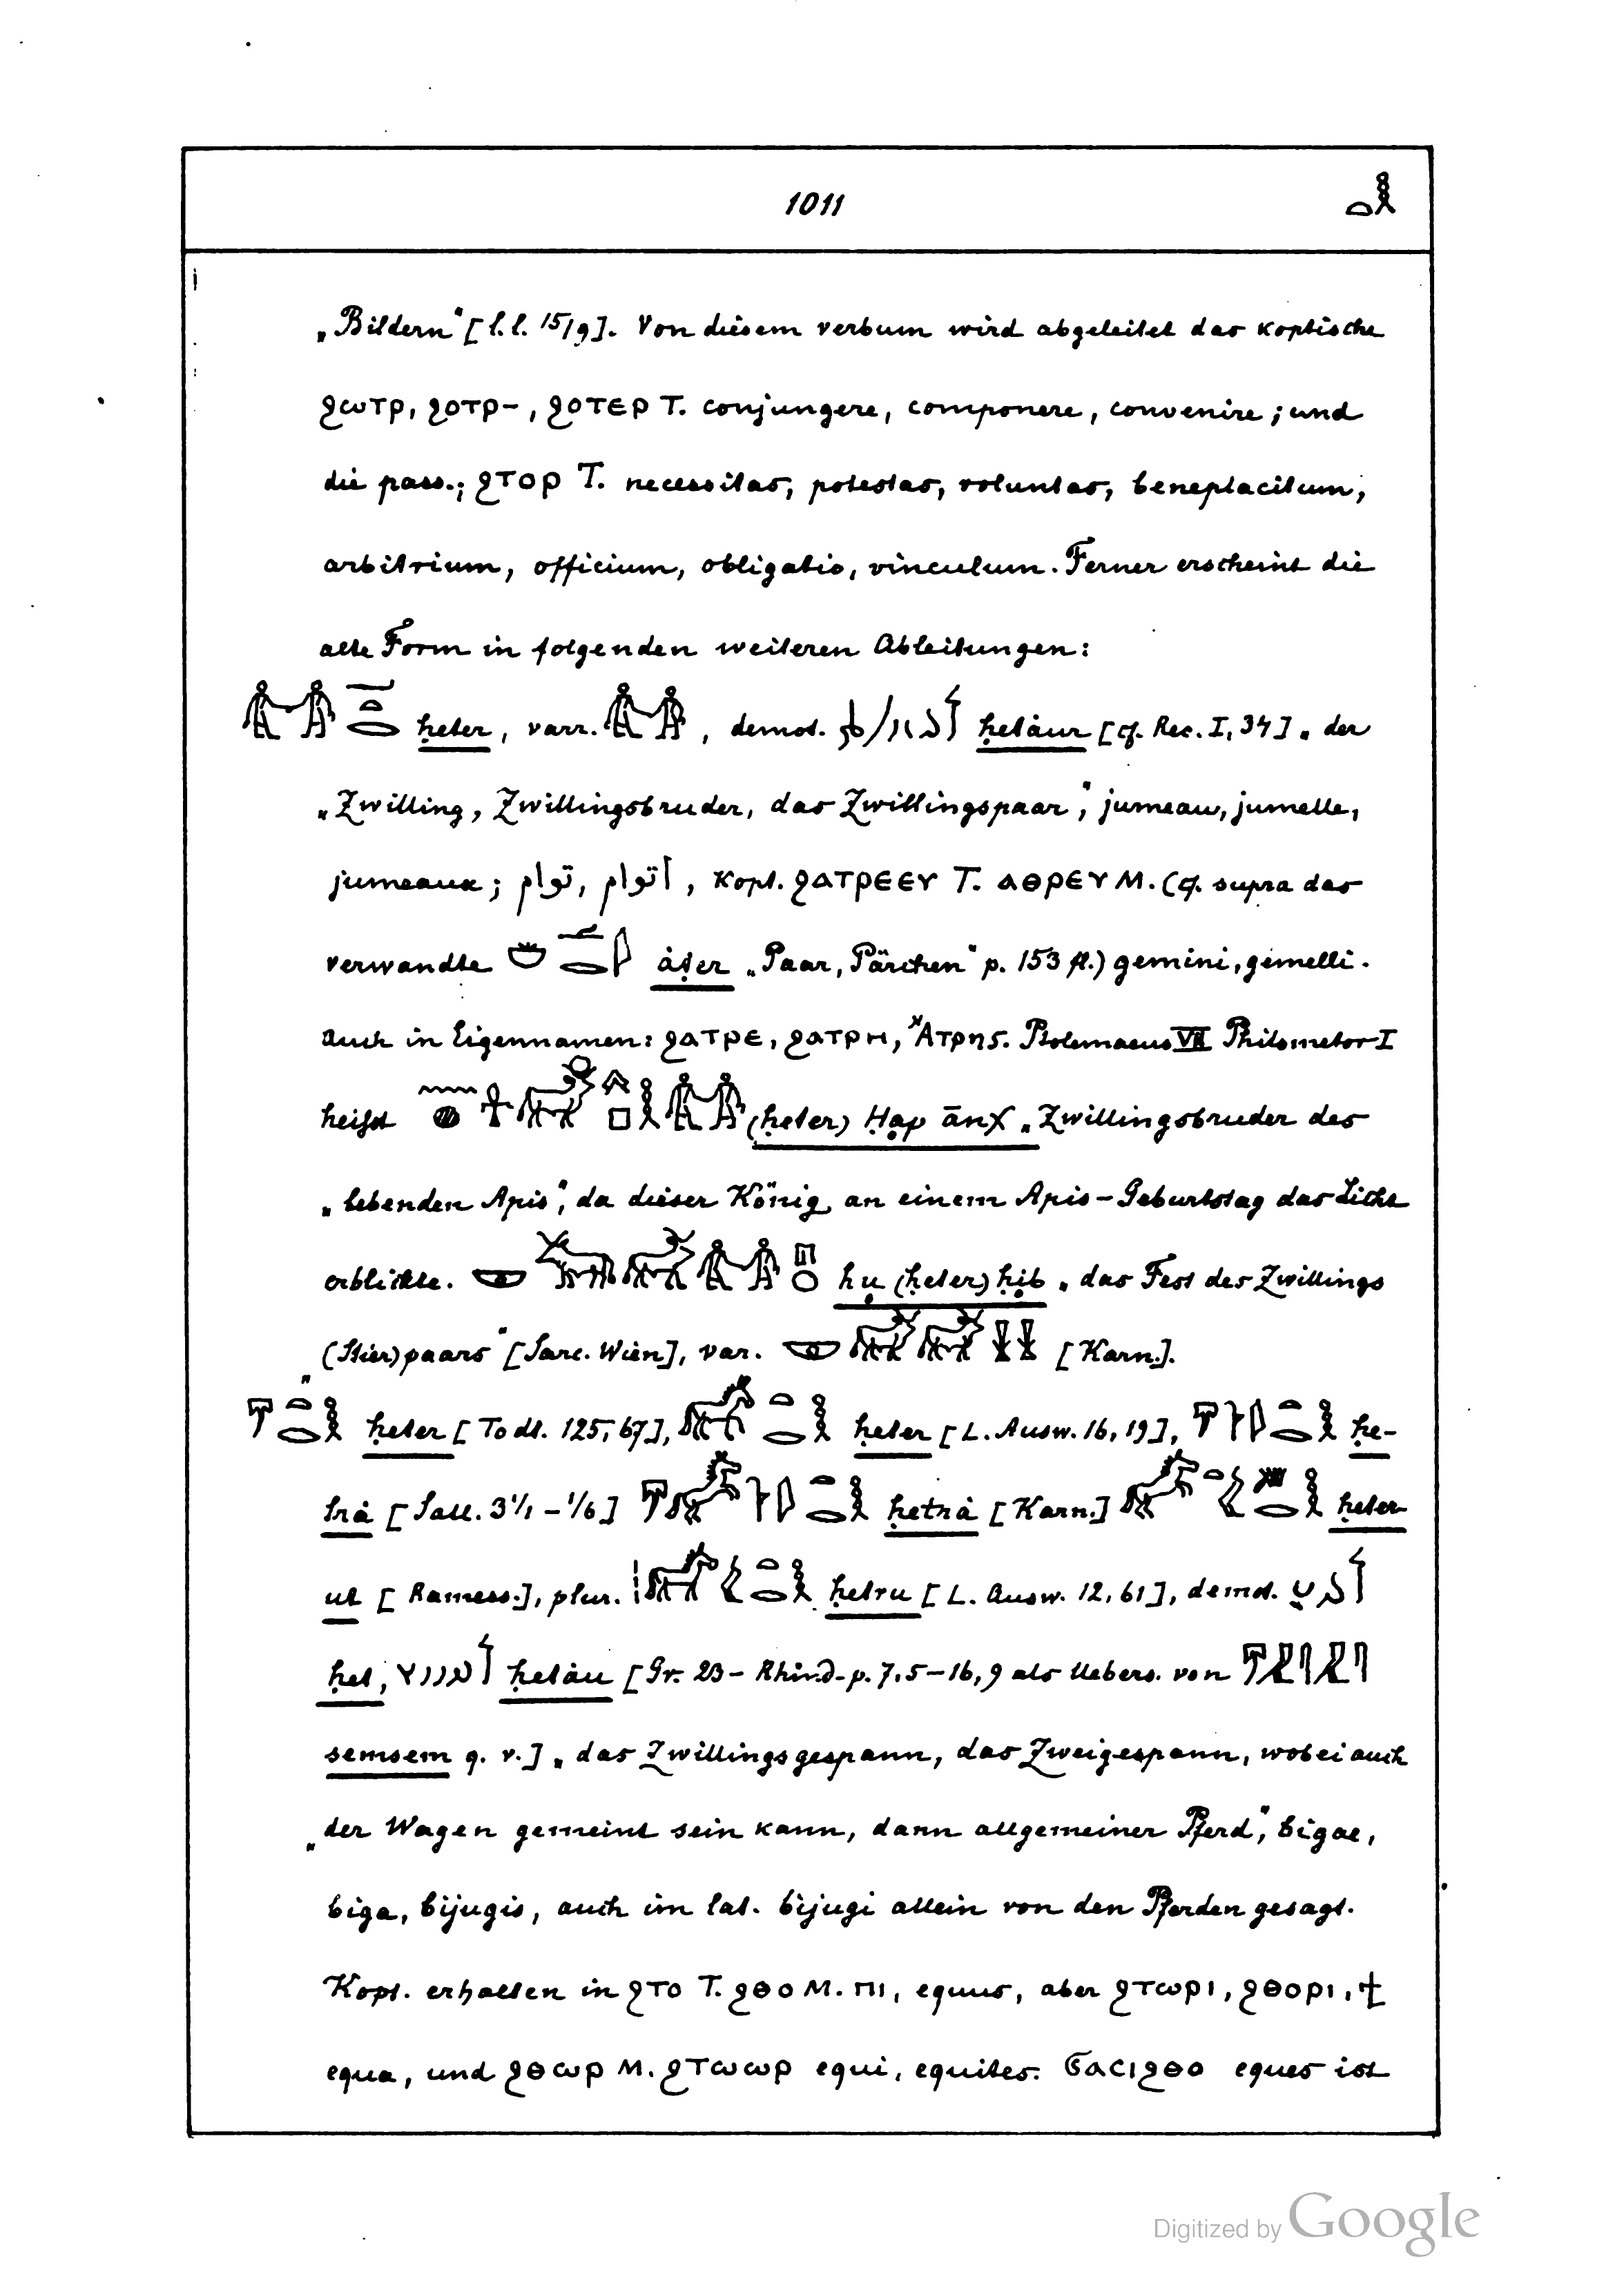 1011
„Bildern“ [l.l. 15/9]. Von diesem verbum wird abgeleitet das koptische
ϩⲱⲧⲣ, ϩⲟⲧⲣ-, ϩⲟⲧⲉⲣ T. conjungere, componere, convenire; und
die pass.; ϩⲧⲟⲣ T. necessitas, potestas, voluntas, beneplacitum,
arbitrium, officium, obligatio, vinculum. Ferner erscheint die
alte Form in folgenden weiteren Ableitungen:
ḥeter, varr. , demot. ḥetàur [cf. Rec. I, 34] „der
„Zwilling, Zwillingsbruder, das Zwillingspaar“, jumeau, jumelle,
jumeaux; توام, اتوام, Kopt. ϩⲁⲧⲣⲉⲉⲩ T. ⲁⲑⲣⲉⲩ M. (cf. supra das
verwandte àṭer „Paar, Pärchen“ p. 153 fl.) gemini, gemelli.
Auch in Eigennamen: ϩⲁⲧⲣⲉ, ϩⲁⲧⲣⲏ, Ἁτρης. Ptolemaeus VII Philometor I
heißt (ḥeter) Ḥap ānχ „Zwillingsbruder des
„lebenden Apis“, da dieser König an einem Apis-Geburtstag das Licht
erblickte. ḥu (ḥeter) ḥib „das Fest des Zwillings
„(Stier)paars“ [Sarc. Wien], var. [Karn.].
ḥeter [Todt. 125, 67], ḥeter [L. Ausw. 16, 19], ḥe-
trà [Sall. 3 1/1 – 1/6] ḥetrà [Karn.] ḥeter
ut [Ramess.], plur. ḥetru [L. Ausw. 12, 61], demot.
ḥet, ḥetàu [Gr. 23 – Rhind. p. 7, 5 – 16, 9 als Uebers. von
semsem q. v.] „das Zwillingsgespann, das Zweigespann, wobei auch
„der Wagen gemeint sein kann, dann allgemeiner Pferd“, bigae,
biga, bijugis, auch im lat. bijugi allein von den Pferden gesagt.
Kopt. erhalten in ϩⲧⲟ T. ϩⲑⲟ M. ⲡⲓ, equus, aber ϩⲧⲱⲣⲓ, ϩⲑⲟⲣⲓ, ϯ
equa, und ϩⲑⲱⲣ M. ϩⲧⲱⲱⲣ equi, equites. ϭⲁⲥⲓϩⲑⲟ eques ist
Digitized by Google